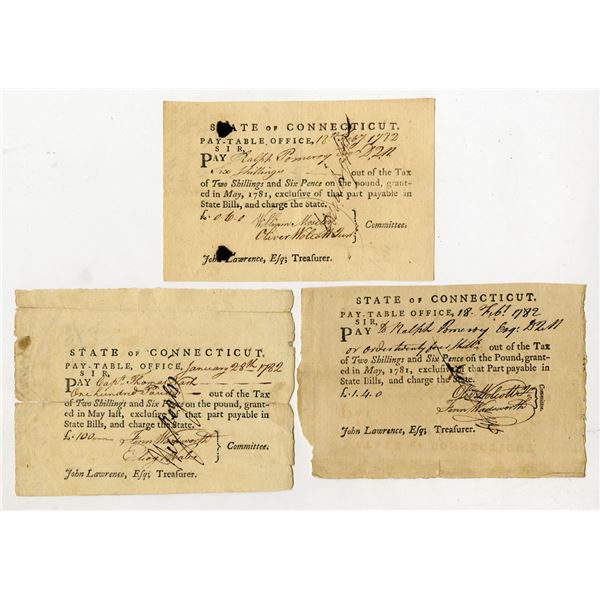 STATE OF CONNECTICUT.
PAY-TABLE OFFICE, 18th Feby 1782
SIR,
PAY Ralph Pomeroy Esqr D,2,M
Six Shillings out of the Tax
of Two Shillings and Six Pence on the pound, grant-
ed in May, 1781, exclusive of that part payable in
State Bills, and charge the State.
£. 0 6.0 William Moseley
Oliver Wolcott Junr Committee.
John Lawrence, Esq; Treasurer.
STATE OF CONNECTICUT.
PAY-TABLE, OFFICE, January 28th 1782
SIR,
PAY Capt. Thomas
One hundred Pounds out of the Tax
of Two Shillings and Six Pence on the Pound, grant-
ed in May last, exclusive of that part payable in
State Bills, and charge the State.
£. 100 Fenn Wadsworth
Committee.
John Lawrence, Esq; Treasurer.
STATE OF CONNECTICUT.
PAY-TABLE OFFICE, 18 Feby 1782
SIR,
PAY to Ralph Pomeroy Esqr D2M
or order twenty four Shills out of the Tax
of Two Shillings and Six Pence on the Pound, grant-
ed in May, 1781, exclusive of that Part payable in
State Bills, and charge the State.
£. 1.4.0 Olivr Wolcott Jr
Fenn Wadsworth
Committee.
John Lawrence, Esq; Treasurer.